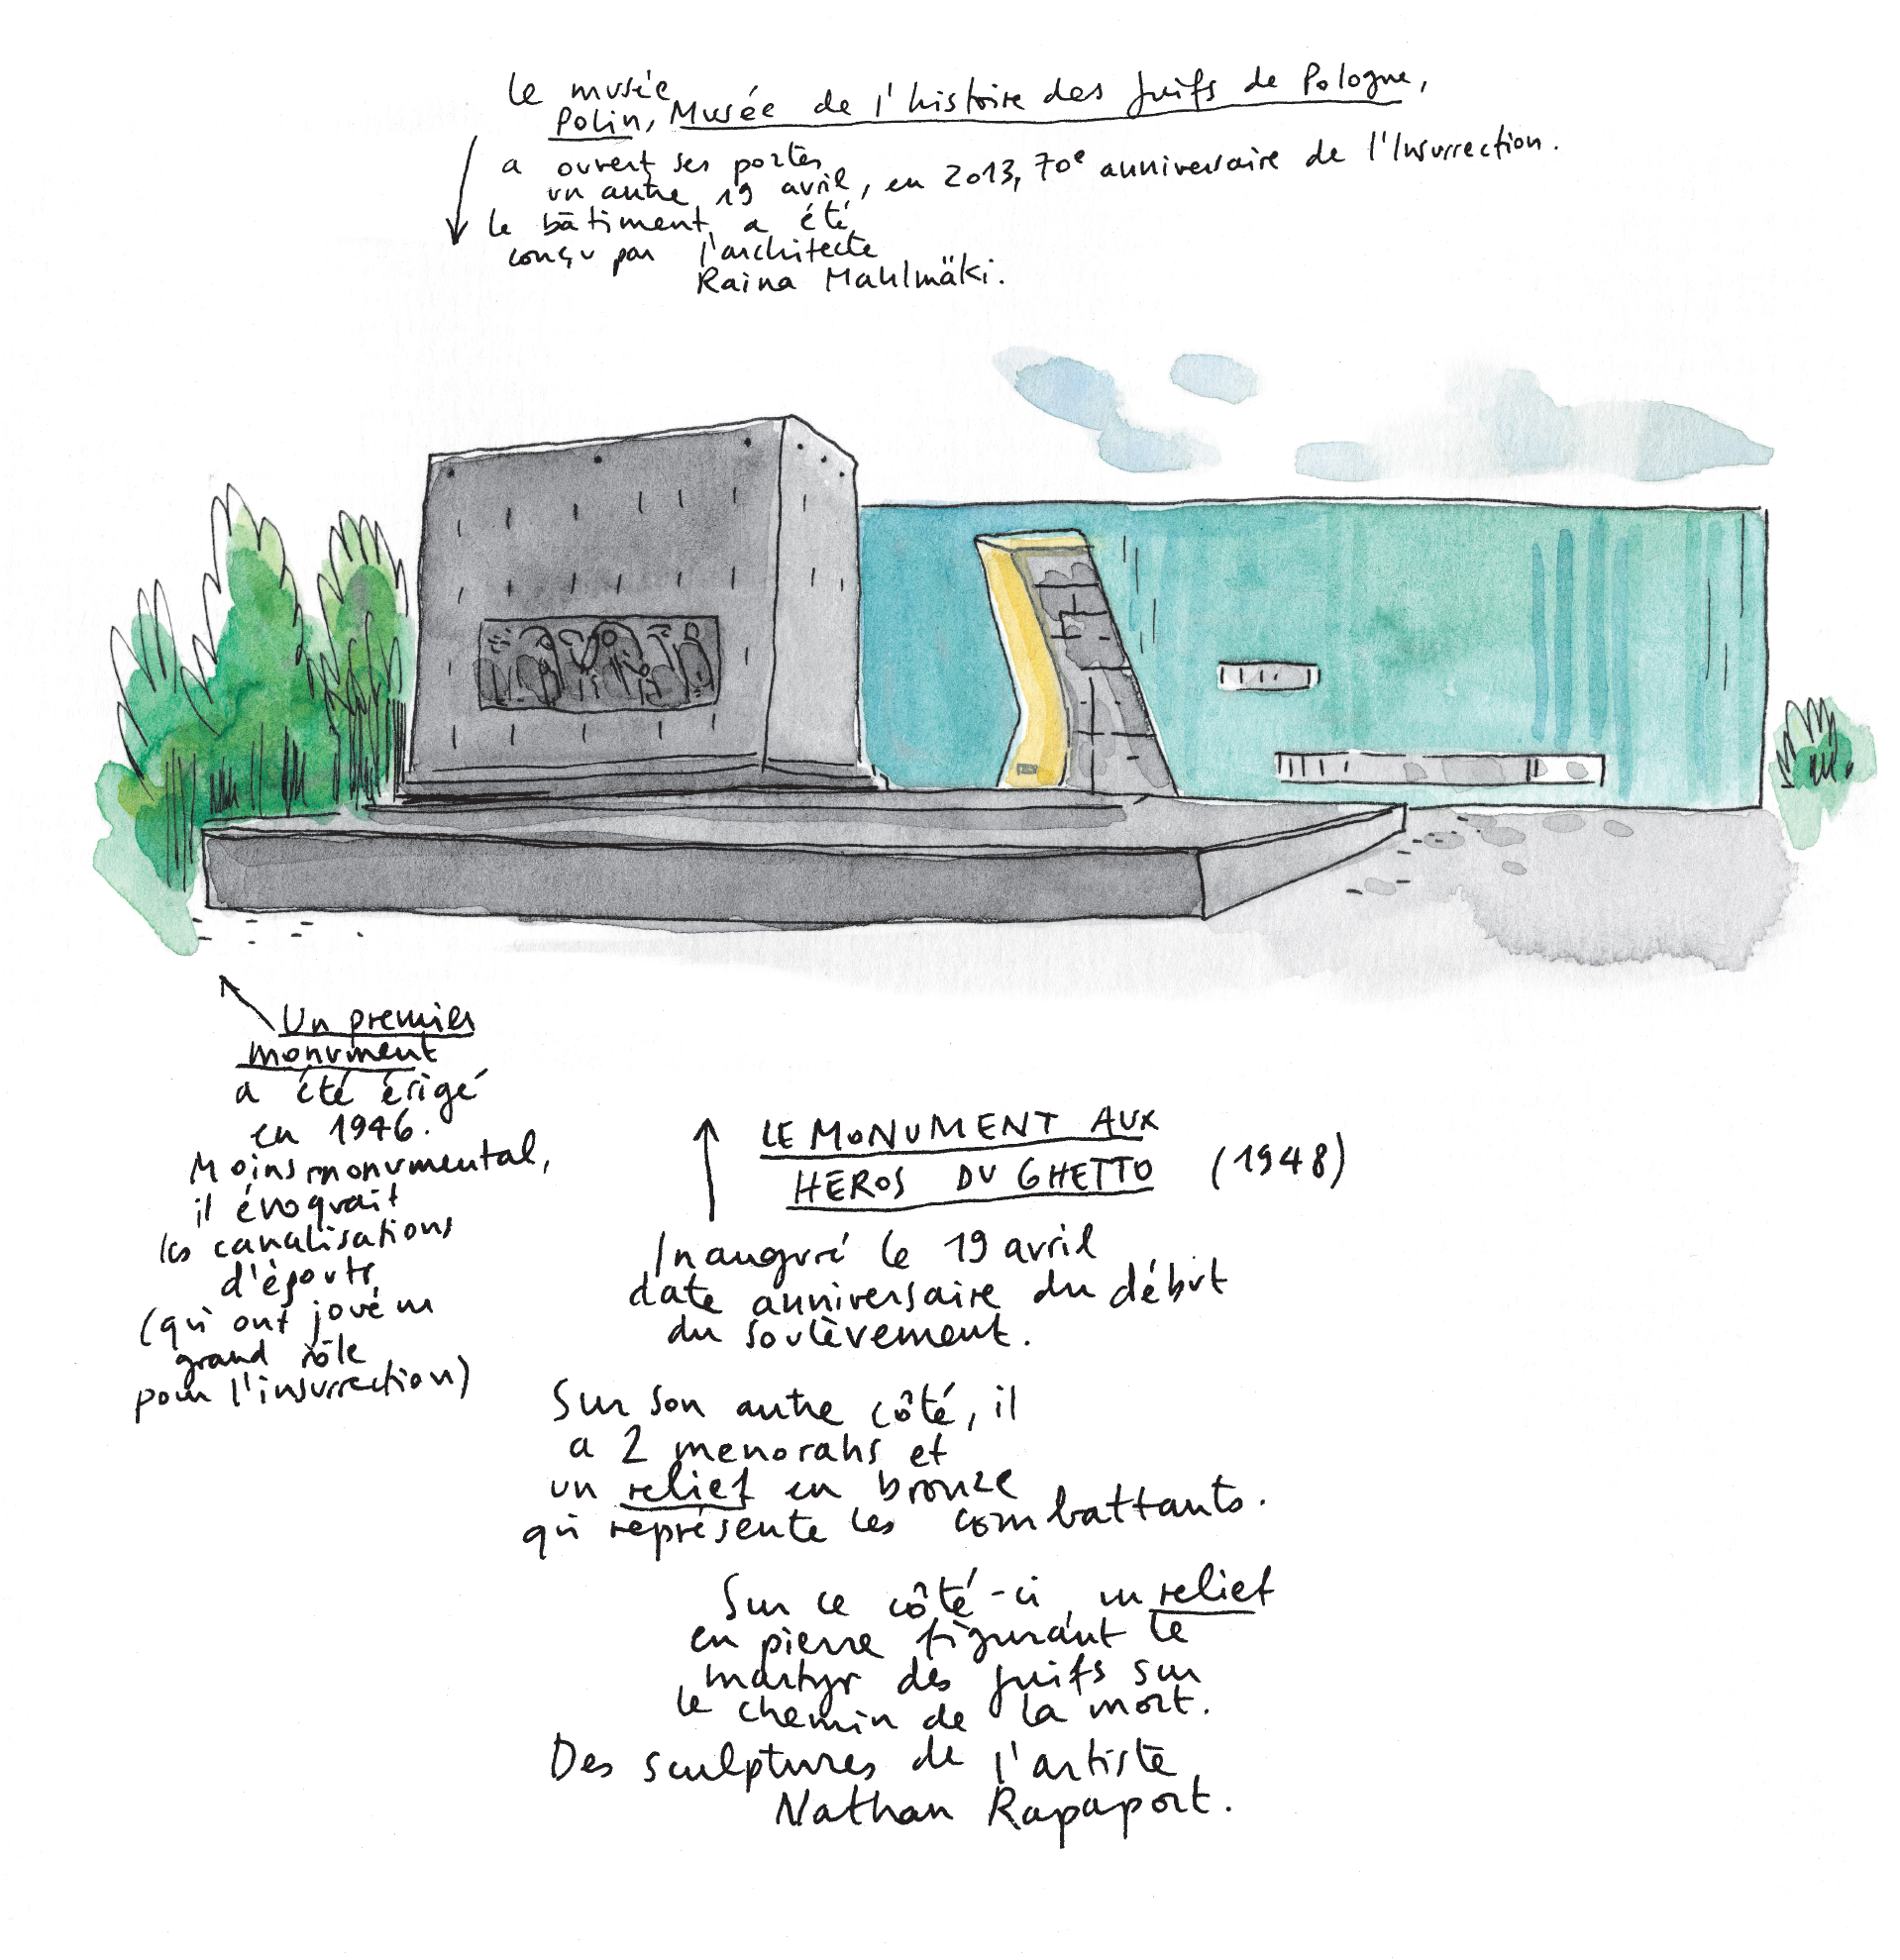 le musée
Polin, Musée de l'histoire des Juifs de Pologne,
a ouvert ses portes
un autre 19 avril, en 2013, 70e anniversaire de l'Insurrection.
le bâtiment a été
conçu par l'architecte
Raina Mahlmäki.
Un premier
monument
a été érigé
en 1946.
Moins monumental,
il évoquait
les canalisations
d'égouts
(qui ont joué un
grand rôle
pour l'insurrection)
LE MONUMENT AUX
HÉROS DU GHETTO (1948)
Inauguré le 19 avril
date anniversaire du début
du soulèvement.
Sur son autre côté, il
a 2 menorahs et
un relief en bronze
qui représente les combattants.
Sur ce côté-ci, un relief
en pierre figurant le
martyr des Juifs sur
le chemin de la mort.
Des sculptures de l'artiste
Nathan Rapaport.